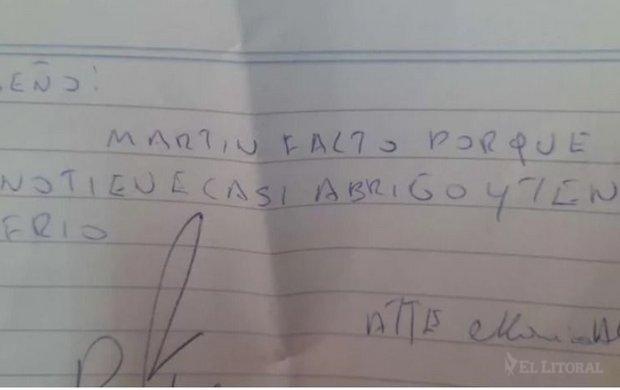 EÑO:
MARTIN FALTO PORQUE
NOTIENE CASI ABRIGO Y TEN
FRIO
ATTE
EL LITORAL